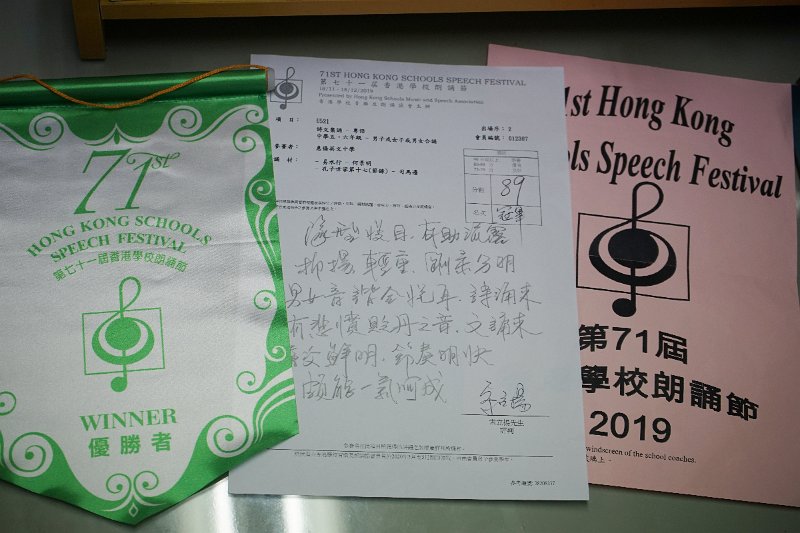 71st
HONG KONG SCHOOLS
SPEECH FESTIVAL
第七十一屆香港學校朗誦節
WINNER
優勝者
71ST HONG KONG SCHOOLS SPEECH FESTIVAL
第七十一屆香港學校朗誦節
18/11 - 18/12/2019
Presented by Hong Kong Schools Music and Speech Association
香港學校音樂及朗誦協會主辦
項目: 1521
出場序: 2
詩文集誦 - 粵語
會員編號: 012387
中學五、六年級 - 男子或女子或男女合誦
參賽者:
英文中學
誦材:
- 易水行 - 何景明
- 孔子世家第十七(節錄) - 司馬遷
分數 89
名次 冠軍
抑揚輕重 剛柔分明
男女音諧全悦耳 詩誦來
有悲憤 之音 文誦來
鮮明 節奏明快
頗能一氣呵成
評判
1st Hong Kong
ols Speech Festival
第71屆
學校朗誦節
2019
windscreen of the school coaches.